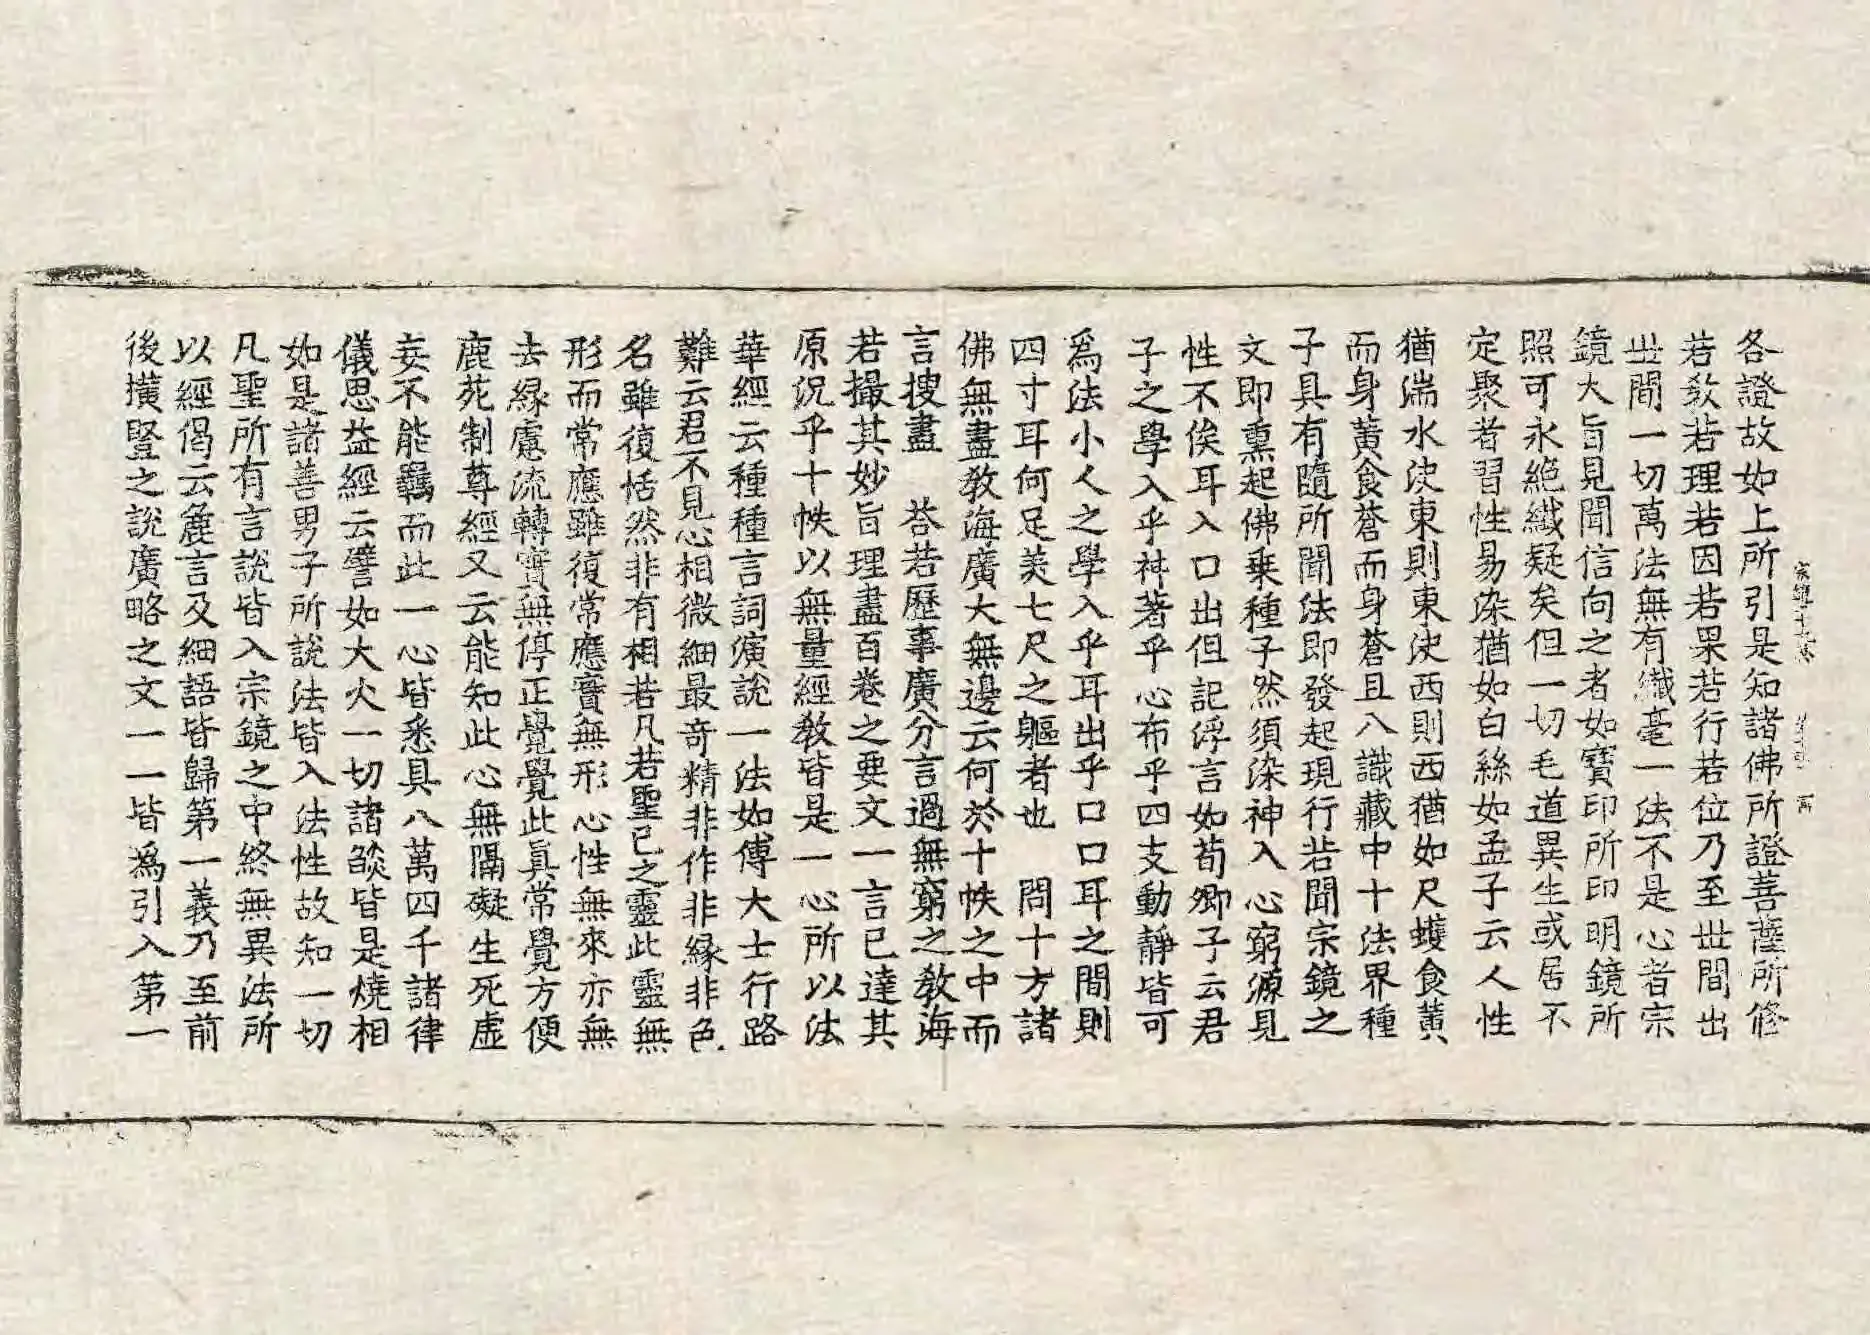 各證故如上所引是知諸佛所證菩薩所修
若教若理若因若果若行若位乃至世間出
世間一切萬法無有纖毫一法不是心者宗
鏡大旨見聞信向之者如寶印所印明鏡所
照可永絕纖疑矣但一切毛道異生或居不
定聚者習性易染猶如白絲如孟子云人性
猶湍水決東則東決西則西猶如尺蠖食黃
而身黃食蒼而身蒼且八識藏中十法界種
子具有隨所聞法即發起現行若聞宗鏡之
文即熏起佛乘種子然須染神入心窮源見
性不俟耳入口出但記浮言如荀卿子云君
子之學入乎神著乎心布乎四支動靜皆可
爲法小人之學入乎耳出乎口口耳之間則
四寸耳何足美七尺之軀者也　問十方諸
佛無盡教海廣大無邊云何於十帙之中而
言搜盡　荅若歷事廣分言過無窮之教海
若撮其妙旨理盡百卷之要文一言已達其
原況乎十帙以無量經教皆是一心所以法
華經云種種言詞演說一法如傅大士行路
難云君不見心相微細最奇精非作非緣非色
名雖復恬然非有相若凡若聖已之靈此靈無
形而常應雖復常應實無形心性無來亦無
去緣慮流轉實無停正覺覺此眞常覺方便
鹿苑制尊經又云能知此心無隔礙生死虛
妄不能羈而此一心皆悉具八萬四千諸律
儀思益經云譬如大火一切諸燄皆是燒相
如是諸善男子所說法皆入法性故知一切
凡聖所有言說皆入宗鏡之中終無異法所
以經偈云麁言及細語皆歸第一義乃至前
後橫豎之說廣略之文一一皆爲引入第一